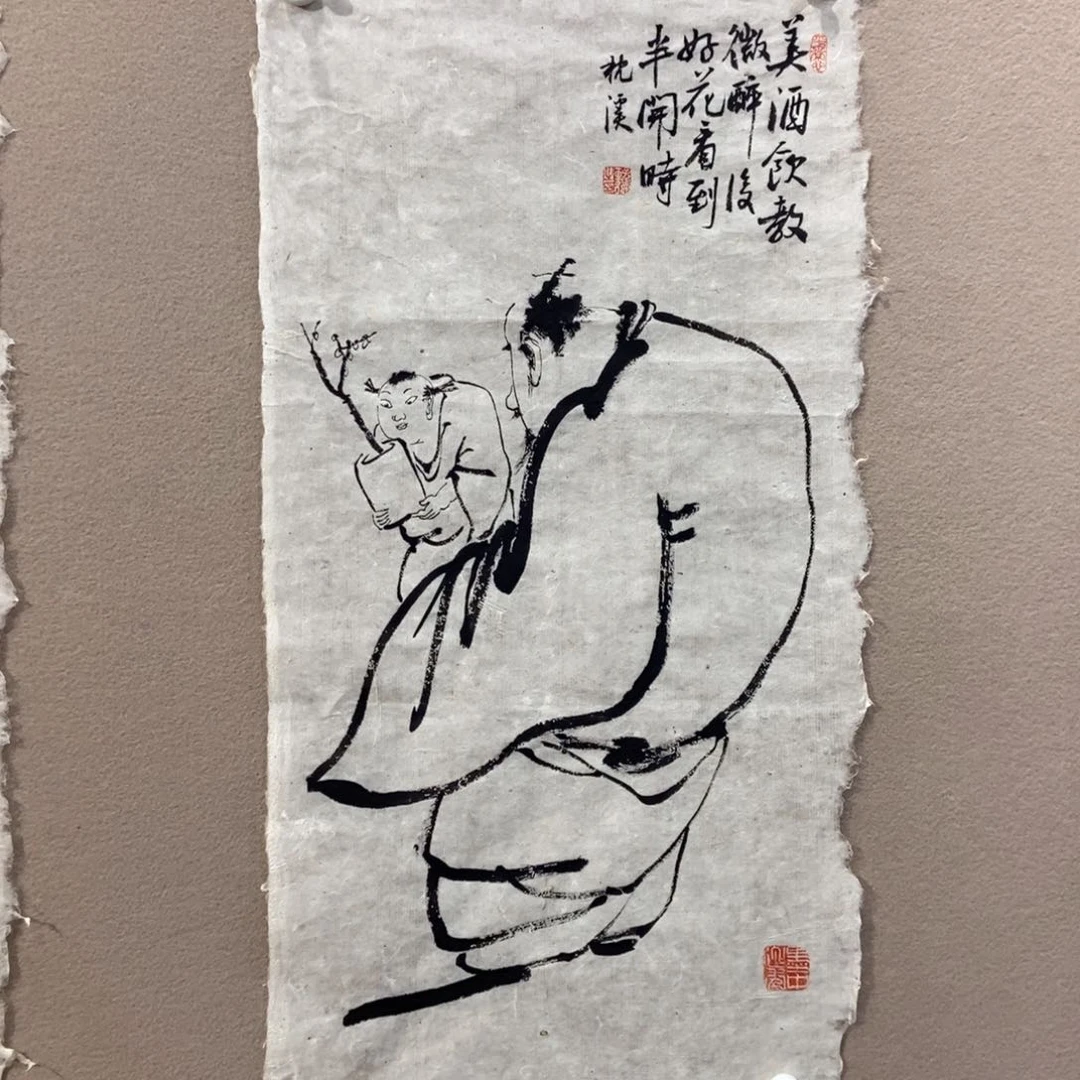 美酒飲教
微醉後
好花看到
半開時
枕溪